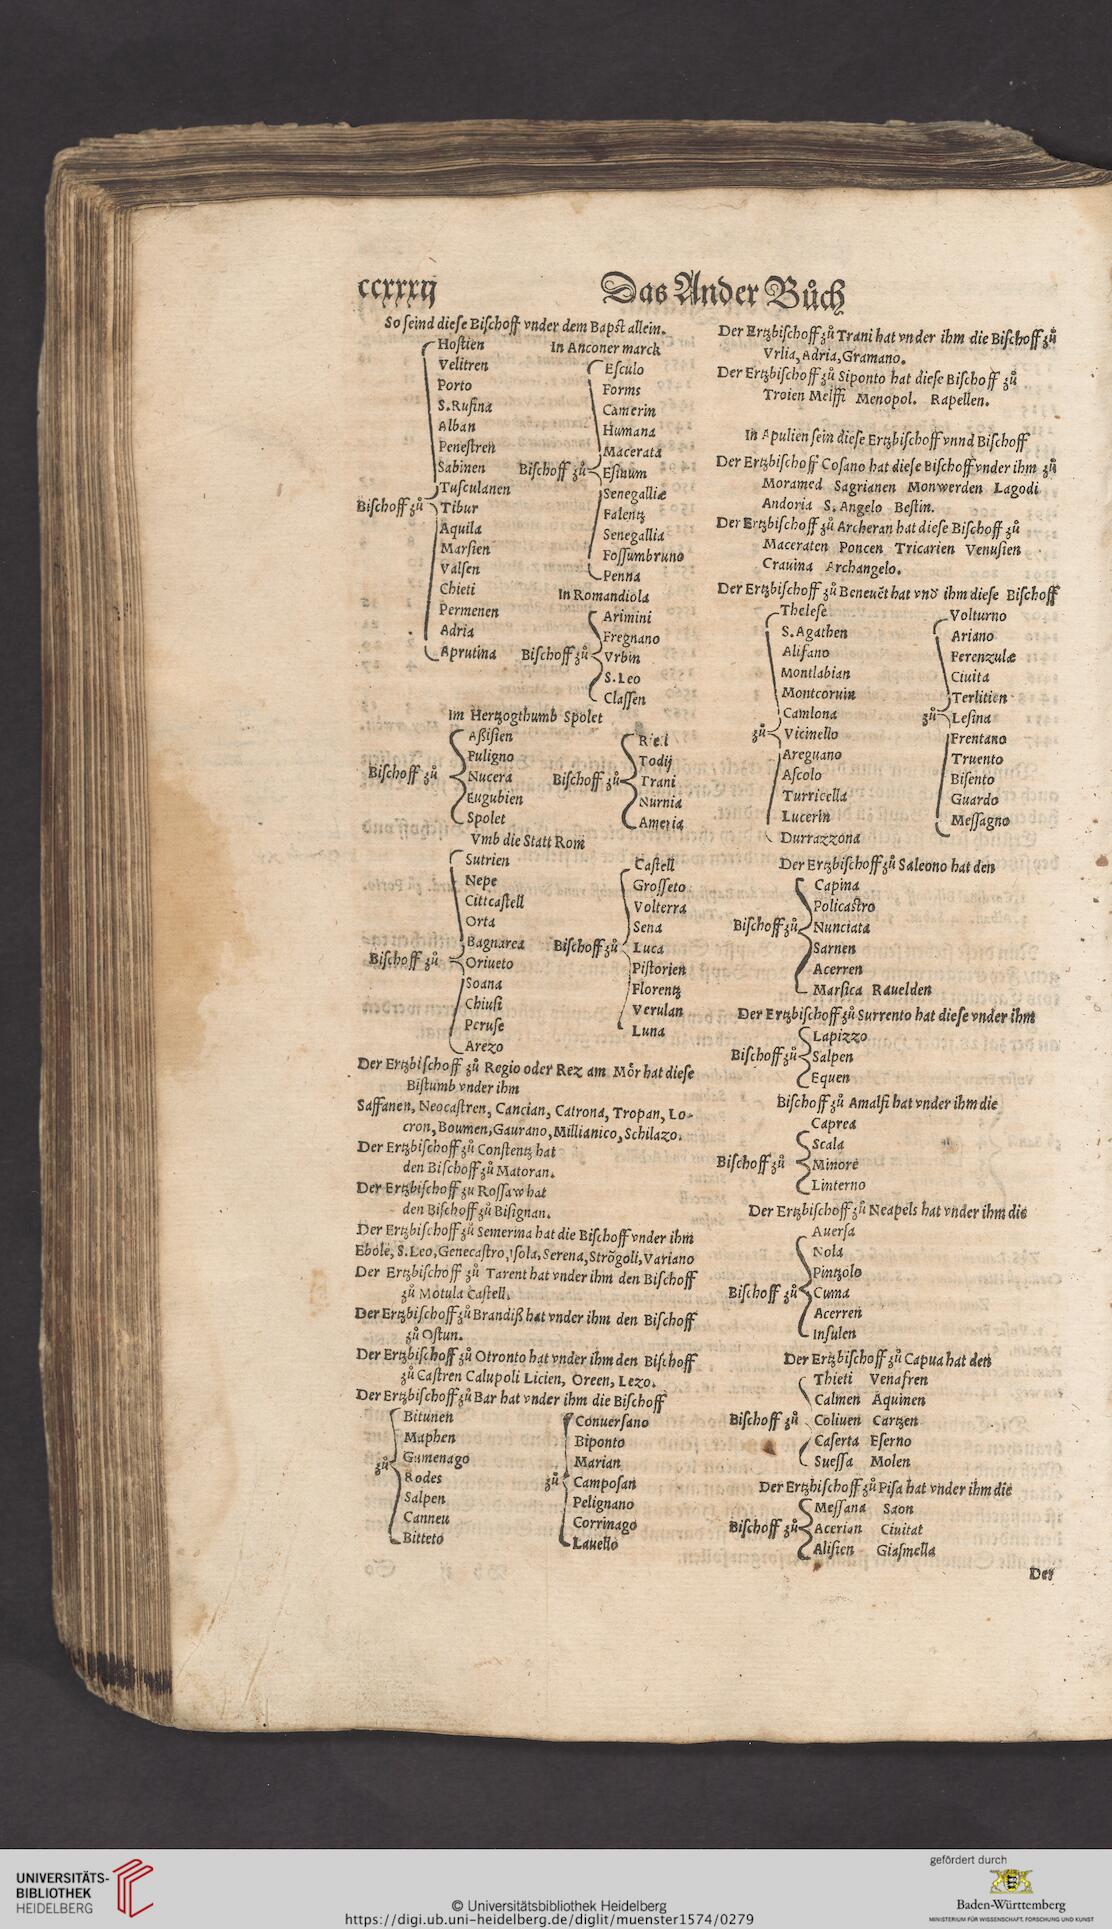 ccxxxij
Das Ander Bůch
So ſeind dieſe Biſchoff vnder dem Bapſt allein.
Biſchoff zů
Hoſtien
Velitren
Porto
S.Ruſina
Alban
Peneſtren
Sabinen
Tuſculanen
Tibur
Aquila
Marſien
Valſen
Chieti
Permenen
Adria
Aprutina
In Anconer marck
Biſchoff zů
Eſculo
Forms
Camerin
Humana
Macerata
Eſinum
Senegalliæ
Falentz
Senegallia
Foſſumbruno
Penna
In Romandiola
Biſchoff zů
Arimini
Fregnano
Vrbin
S.Leo
Claſſen
Im Hertzogthumb Spolet
Biſchoff zů
Aßiſien
Fuligno
Nucera
Eugubien
Spolet
Biſchoff zů
Rieti
Todij
Trani
Nurnia
Ameria
Vmb die Statt Rom
Biſchoff zů
Sutrien
Nepe
Cittcaſtell
Orta
Bagnarea
Oriueto
Soana
Chiuſi
Peruſe
Arezo
Biſchoff zů
Caſtell
Groſſeto
Volterra
Sena
Luca
Piſtorien
Florentz
Verulan
Luna
Der Ertzbiſchoff zů Regio oder Rez am Mör hat dieſe
Biſtumb vnder ihm
Saffanen, Neocaſtren, Cancian, Catrona, Tropan, Lo-
cron, Boumen, Gaurano, Millianico, Schilazo.
Der Ertzbiſchoff zů Conſtentz hat
den Biſchoff zů Matoran.
Der Ertzbiſchoff zu Roſſaw hat
den Biſchoff zů Biſignan.
Der Ertzbiſchoff zů Semerina hat die Biſchoff vnder ihm
Ebole, S.Leo, Genecaſtro, Iſola, Serena, Strõgoli, Variano
Der Ertzbiſchoff zů Tarent hat vnder ihm den Biſchoff
zů Motula Caſtell.
Der Ertzbiſchoff zů Brandiß hat vnder ihm den Biſchoff
zů Oſtun.
Der Ertzbiſchoff zů Otronto hat vnder ihm den Biſchoff
zů Caſtren Calupoli Licien, Oreen, Lezo.
Der Ertzbiſchoff zů Bar hat vnder ihm die Biſchoff
zů
Bitunen
Maphen
Gumenago
Rodes
Salpen
Canneu
Bitteto
zů
Conuerſano
Biponto
Marian
Campoſan
Pelignano
Corrinago
Lauello
Der Ertzbiſchoff zů Trani hat vnder ihm die Biſchoff zů
Vrlia, Adria, Gramano.
Der Ertzbiſchoff zů Siponto hat dieſe Biſchoff zů
Troien Melffi Menopol. Rapellen.
In Apulien ſein dieſe Ertzbiſchoff vnnd Biſchoff
Der Ertzbiſchoff Coſano hat dieſe Biſchoff vnder ihm zů
Moramed Sagrianen Monwerden Lagodi
Andoria S. Angelo Beſtin.
Der Ertzbiſchoff zů Archeran hat dieſe Biſchoff zů
Maceraten Poncen Tricarien Venuſien
Crauina Archangelo.
Der Ertzbiſchoff zů Beneuēt hat vnd ihm dieſe Biſchoff
zů
Theleſe
S.Agathen
Alifano
Montlabian
Montcoruin
Camlona
Vicinello
Areguano
Aſcolo
Turricella
Lucerin
Durrazzona
zů
Volturno
Ariano
Ferenzulæ
Ciuita
Terlitien
Leſina
Frentano
Truento
Biſento
Guardo
Meſſagno
Der Ertzbiſchoff zů Saleono hat den
Biſchoff zů
Capina
Policaſtro
Nunciata
Sarnen
Acerren
Marſica Rauelden
Der Ertzbiſchoff zů Surrento hat dieſe vnder ihm
Biſchoff zů
Lapizzo
Salpen
Equen
Biſchoff zů Amalfi hat vnder ihm die
Biſchoff zů
Caprea
Scala
Minore
Linterno
Der Ertzbiſchoff zů Neapels hat vnder ihm die
Biſchoff zů
Auerſa
Nola
Pintzolo
Cuma
Acerren
Inſulen
Der Ertzbiſchoff zů Capua hat den
Biſchoff zů
Thieti Venafren
Calmen Aquinen
Coliuen Cartzen
Caſerta Eſerno
Sueſſa Molen
Der Ertzbiſchoff zů Piſa hat vnder ihm die
Biſchoff zů
Meſſana Saon
Acerian Ciuitat
Aliſien Giaſmella
Der
UNIVERSITÄTS-
BIBLIOTHEK
HEIDELBERG
© Universitätsbibliothek Heidelberg
https://digi.ub.uni-heidelberg.de/diglit/muenster1574/0279
gefördert durch
Baden-Württemberg
MINISTERIUM FÜR WISSENSCHAFT, FORSCHUNG UND KUNST